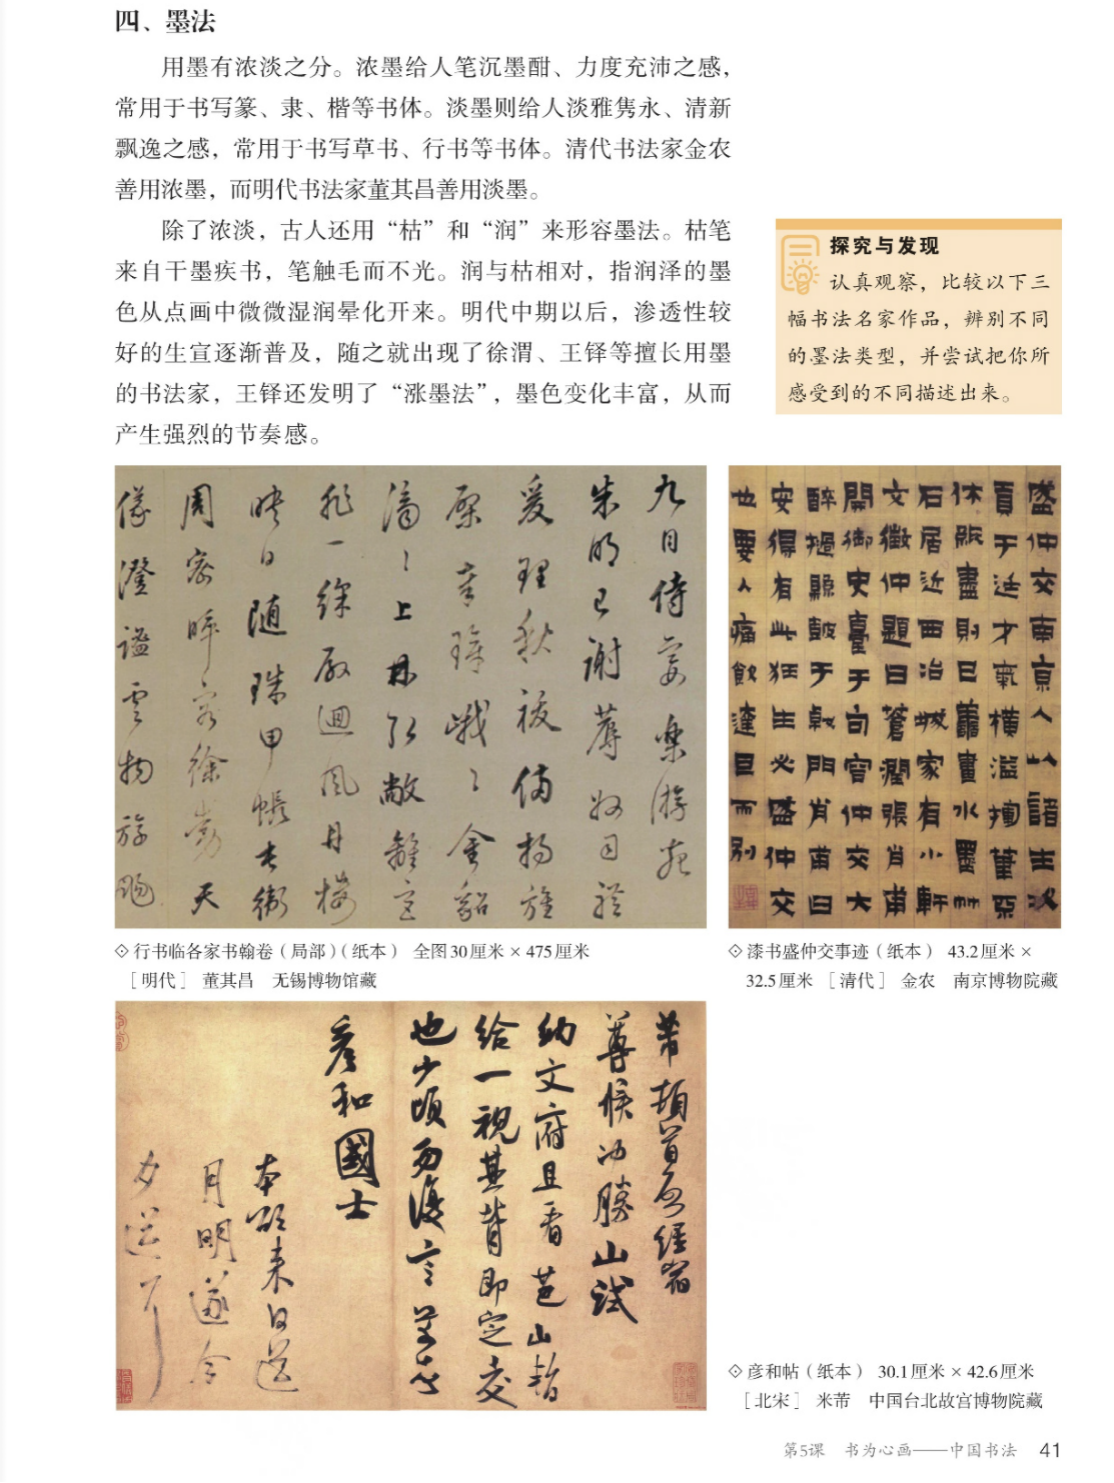 四、墨法
用墨有浓淡之分。浓墨给人笔沉墨酣、力度充沛之感，
常用于书写篆、隶、楷等书体。淡墨则给人淡雅隽永、清新
飘逸之感，常用于书写草书、行书等书体。清代书法家金农
善用浓墨，而明代书法家董其昌善用淡墨。
除了浓淡，古人还用“枯”和“润”来形容墨法。枯笔
来自干墨疾书，笔触毛而不光。润与枯相对，指润泽的墨
色从点画中微微湿润晕化开来。明代中期以后，渗透性较
好的生宣逐渐普及，随之就出现了徐渭、王铎等擅长用墨
的书法家，王铎还发明了“涨墨法”，墨色变化丰富，从而
产生强烈的节奏感。
探究与发现
认真观察，比较以下三
幅书法名家作品，辨别不同
的墨法类型，并尝试把你所
感受到的不同描述出来。
九日侍宴樂游苑
朱明已謝蓐收司禮
爰理秋祓備揚旌
棨璋峨〻金貂
濟〻上林弘敞離宮
非一綵殿迴風丹樓
映日隨珠甲帳屯衛
周密暉容徐動天
儀澄謐雲物游颺
盛仲交南京人以諸生
貢于廷才氣橫溢筆
盡則巳畫水墨竹
石居近西冶城家有小軒
文徵仲題曰蒼潤張肖甫
開御史臺于句容仲交大
醉撾縣鼓于戟門肖甫曰
安得有此狂生必盛仲交
也要人痛飲達旦而别
◇行书临各家书翰卷（局部）（纸本） 全图30厘米×475厘米
［明代］ 董其昌 无锡博物馆藏
◇漆书盛仲交事迹（纸本） 43.2厘米×
32.5厘米 ［清代］ 金农 南京博物院藏
芾頓首再啓經宿
尊候冲勝山試
納文府且看芭山暫
給一視其背即定交
也少頃勿復言芾頓首
彦和國士
本欲來日送
月明遂今
夕送耳
◇彦和帖（纸本） 30.1厘米×42.6厘米
［北宋］ 米芾 中国台北故宫博物院藏
第5课 书为心画——中国书法 41